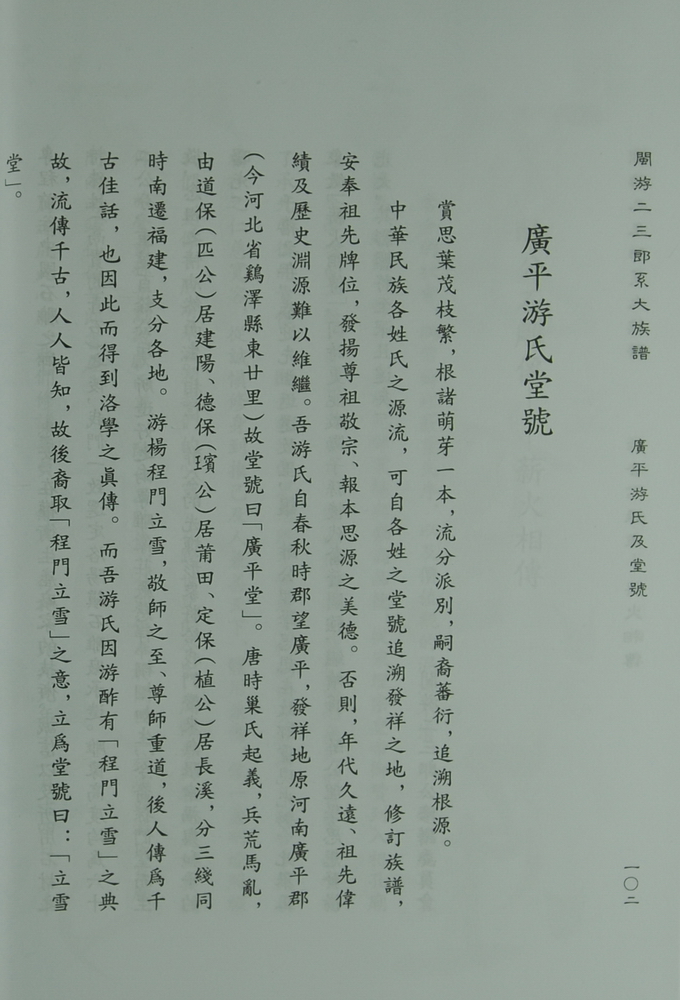 閩游二三郎系大族譜
廣平游氏及堂號
一〇二
廣平游氏堂號
賞思葉茂枝繁，根諸萌芽一本，流分派別，嗣裔蕃衍，追溯根源。
中華民族各姓氏之源流，可自各姓之堂號追溯發祥之地，修訂族譜，
安奉祖先牌位，發揚尊祖敬宗、報本思源之美德。否則，年代久遠、祖先偉
績及歷史淵源難以維繼。吾游氏自春秋時郡望廣平，發祥地原河南廣平郡
(今河北省鷄澤縣東廿里)故堂號曰「廣平堂」。唐時巢氏起義，兵荒馬亂，
由道保(匹公)居建陽、德保(璸公)居莆田、定保(植公)居長溪，分三綫同
時南遷福建，支分各地。游楊程門立雪，敬師之至、尊師重道，後人傳爲千
古佳話，也因此而得到洛學之眞傳。而吾游氏因游酢有「程門立雪」之典
故，流傳千古，人人皆知，故後裔取「程門立雪」之意，立爲堂號曰：「立雪
堂」。